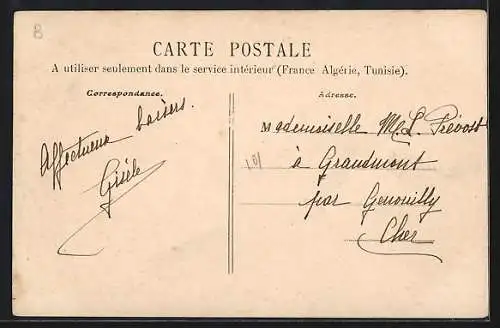 B
CARTE POSTALE
A utiliser seulement dans le service intérieur (France Algérie, Tunisie).
Correspondance.
Affectueux baisers.
Gisèle
Adresse.
Mademoiselle M.L. Prévost
à Grandmont
par Genouilly
Cher